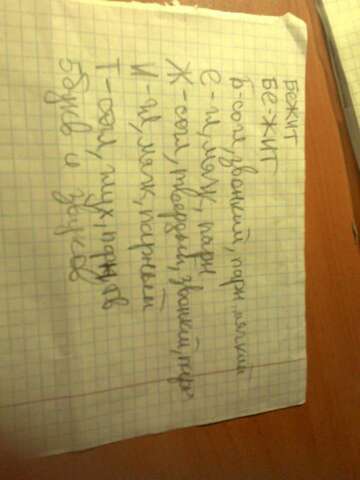 БЕЖИТ
БЕ-ЖИТ
Б-согл, звонкий, парн, мягкий
Е-гл, мягк, парн
Ж-согл, твердый, звонкий, парн
И-гл, мягк, парный
Т-согл, глух, парн, тв
5 букв и звуков